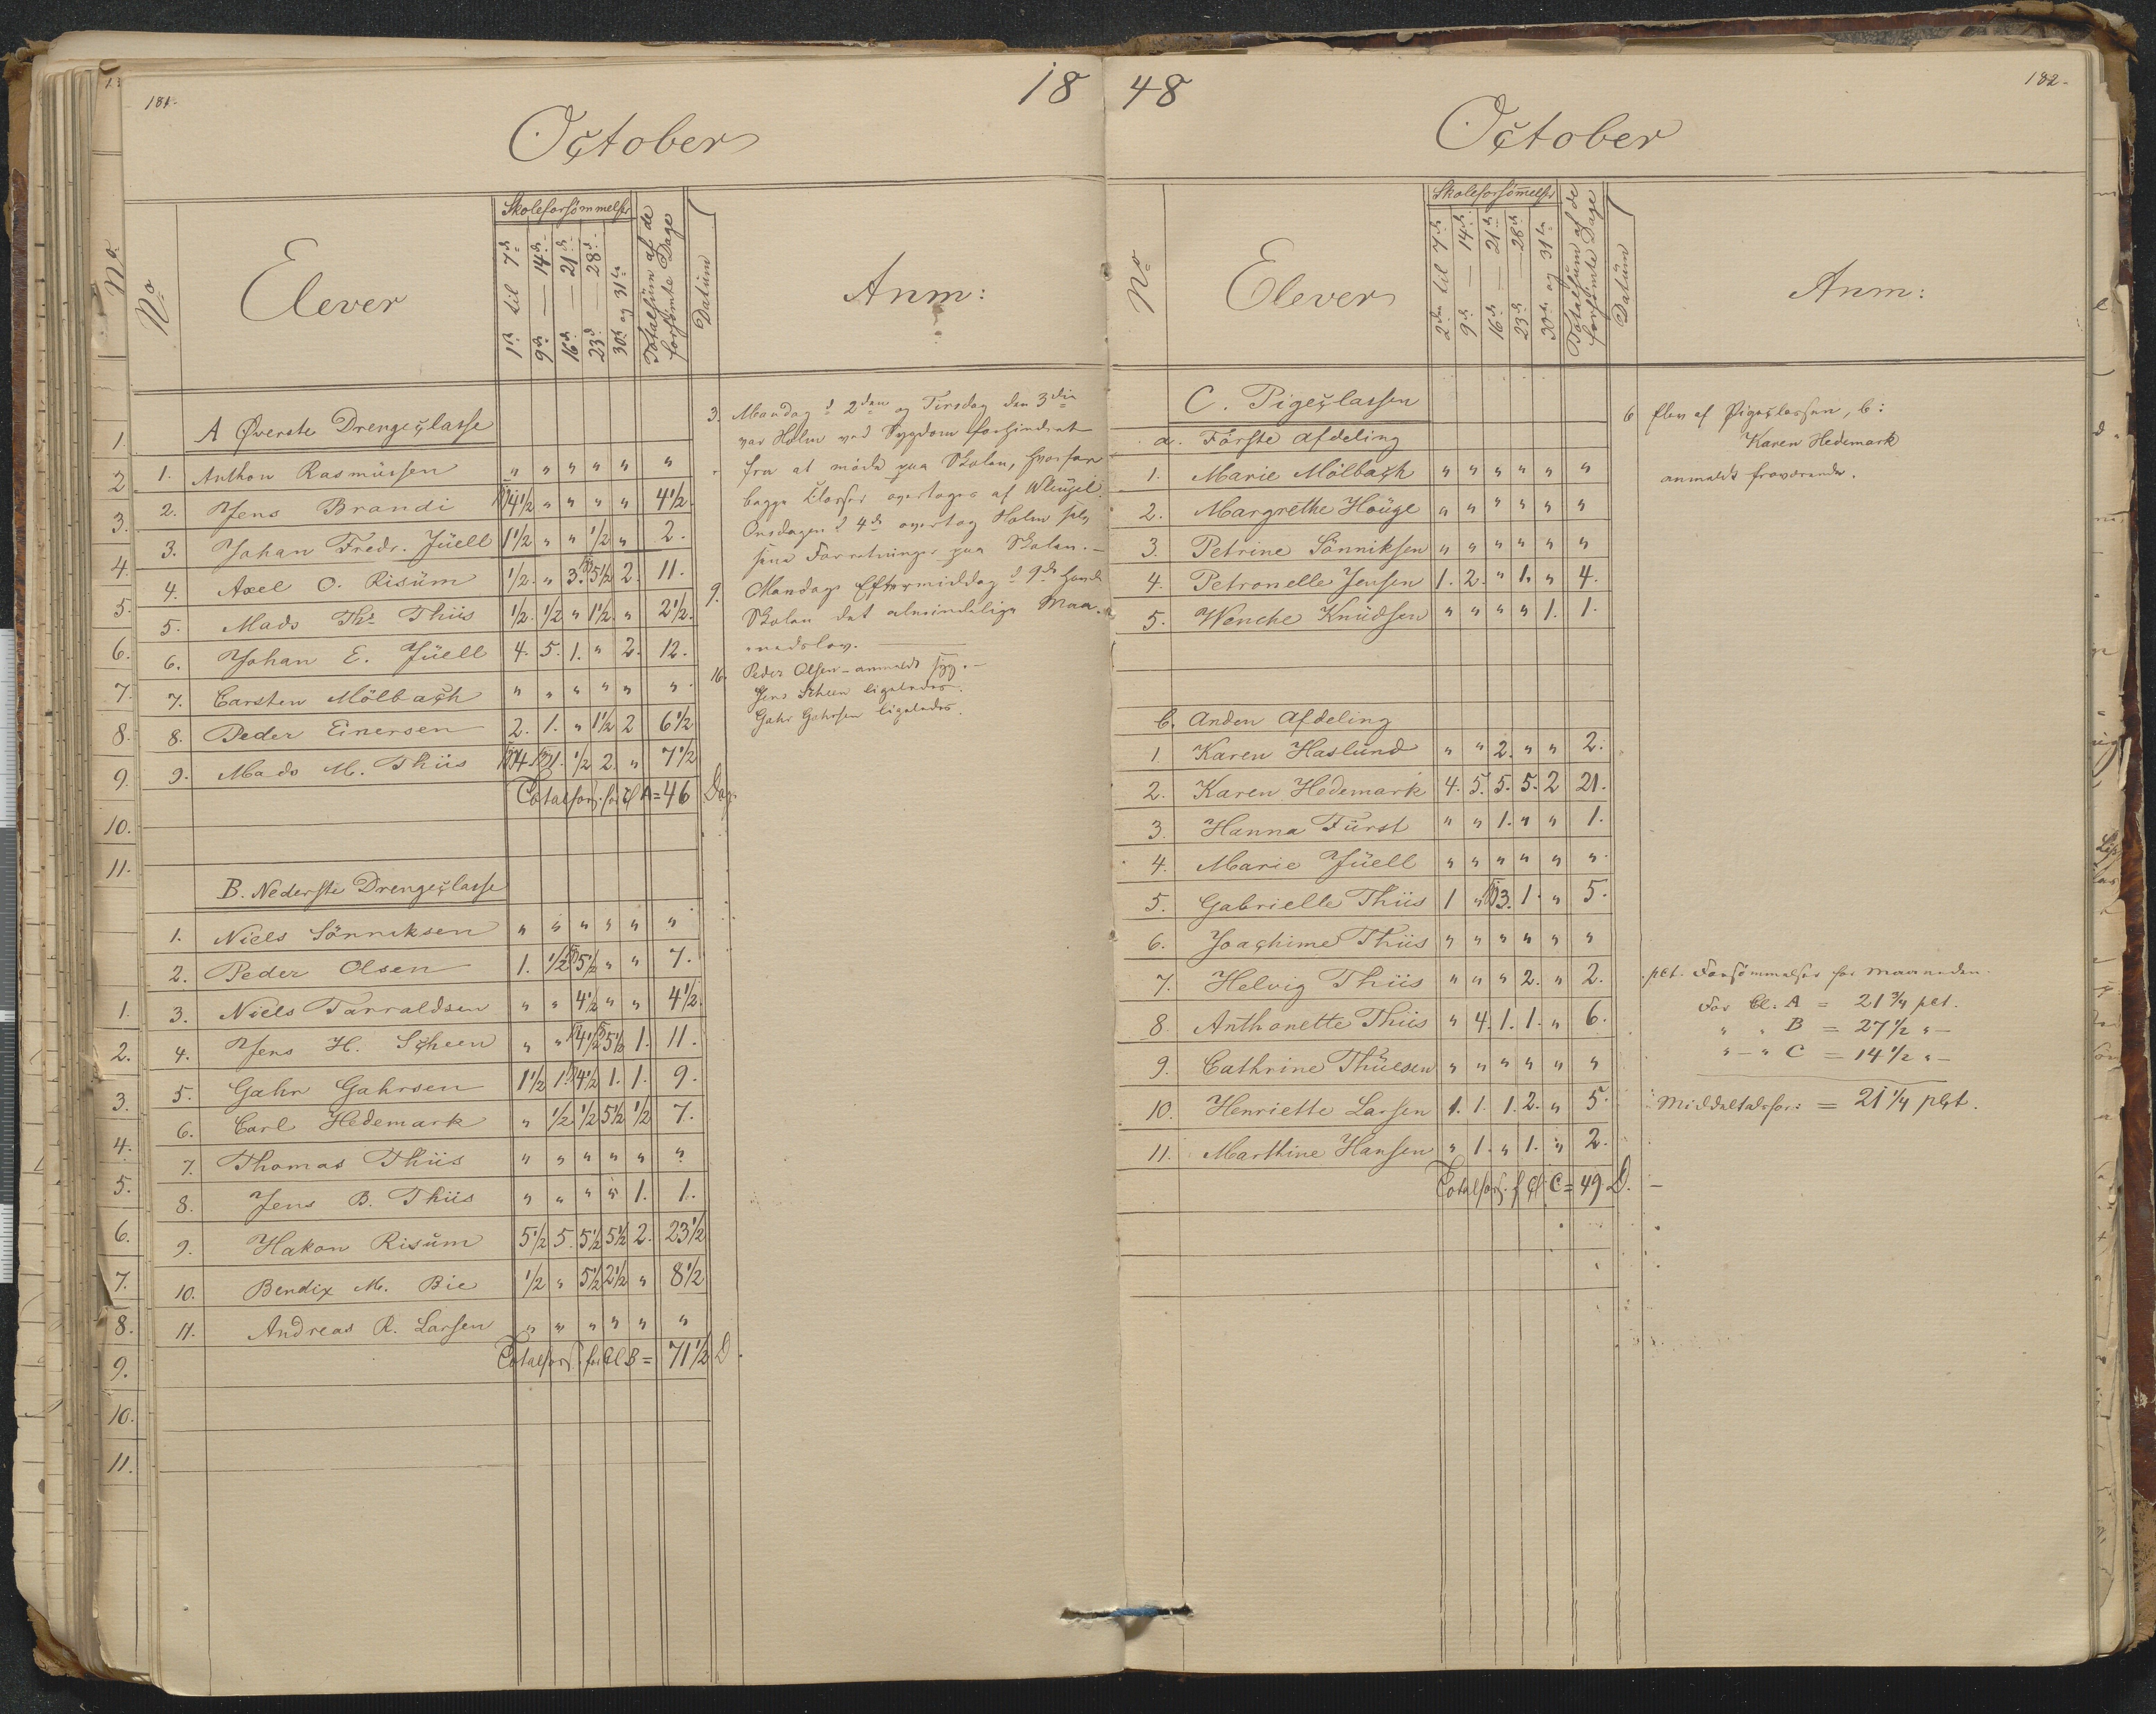 181.
18
October
No
Elever
Skoleforsömmelser
1ste til 7de
9de — 14de
16de — 21de
23de — 28de
30te og 31te
Totalsüm af de
forsömte Dage
Datüm
Anm:
A Øverste Drengeclasse
1. Anthon Rasmüssen " " " " " "
2. Jens Brandi 4½ " " " " 4½.
3. Johan Fredr. Jüell 1½ " " ½ " 2.
4. Axel O. Risüm ½. " 3. 5½ 2. 11.
5. Mads Thr Thiis ½. ½ " 1½. " 2½.
6. Johan E. Jüell 4. 5. 1. " 2. 12.
7. Carsten Mölbach " " " " " "
8. Peder Einersen 2. 1. " 1½ 2 6½
9. Mads M. Thiis 4. 1. ½ 2. " 7½
Totalfors. for Cl A = 46 Dag.
B. Nederste Drengeclasse
1. Niels Sönniksen " " " " " "
2. Peder Olsen 1. ½ 5½ " " 7.
3. Niels Tarraldsen " " 4½ " " 4½.
4. Jens H. Scheen " " 4½ 5½ 1. 11.
5. Gahr Gahrsen 1½ 1. 4½ 1. 1. 9.
6. Carl Hedemark " ½ ½ 5½ ½ 7.
7. Thomas Thiis " " " " " "
8. Jens B. Thiis " " " " 1. 1.
9. Hakon Risüm 5½ 5. 5½ 5½ 2. 23½
10. Bendix M. Bie ½ " 5½ 2½ " 8½
11. Andreas R. Larsen " " " " " "
Totalfors. for Cl B = 71½ D.
3. Mandag d 2den og Tirsdag den 3die
var Holm ved Sygdom forhindret
fra at möde paa Skolen, hvorfor
begge Classer overtoges af Wleügel.
Onsdagen d 4de overtog Holm selv
sine Forretninger paa Skolen. —
9. Mandags Eftermiddag d 9de havde
Skolen det almindelige Maa-
nedslov.
16. Peder Olsen – anmeldt syg. —
Jens Scheen ligeledes.
Gahr Gahrsen ligeledes.
48
182.
October
No
Elever
Skoleforsömmelser
2den til 7de
9de — 14de
16de — 21de
23de — 28de
30te og 31te
Totalsüm af de
forsömte Dage
Datüm
Anm:
C. Pigeclassen
a. Förste Afdeling
1. Marie Mölbach " " " " " "
2. Margrethe Höüge " " " " " "
3. Petrine Sönniksen " " " " " "
4. Petronelle Jensen 1. 2. " 1. " 4.
5. Wenche Knüdsen " " " " 1. 1.
b. Anden Afdeling
1 Karen Haslünd " " 2. " " 2.
2. Karen Hedemark 4. 5. 5. 5. 2 21.
3. Hanna Fürst " " 1. " " 1.
4. Marie Jüell " " " " " "
5. Gabrielle Thiis 1 " 3. 1. " 5.
6. Joachime Thiis " " " " " "
7. Helvig Thiis " " " 2. " 2.
8. Anthonette Thiis " 4. 1. 1. " 6.
9. Cathrine Thüesen " " " " " "
10. Henriette Larsen 1. 1. 1. 2. " 5.
11. Marthine Hansen " 1. " 1. " 2.
Totalfors. f Cl: C = 49 D. —
6 Elev af Pigeclassen, b:
Karen Hedemark
anmeldt fraværende.
pct. Forsömmelser for Maaneden.
For Cl: A = 21¾ pct.
" " B = 27½ " —
" — " C = 14½ " —
Middeltalsfors: = 21¼ pct.